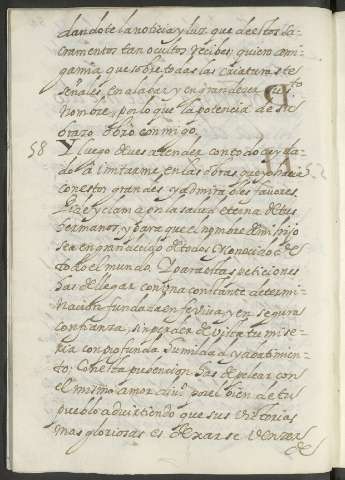 dandote la noticia y luz que de estos sa-
cramentos tan ocultos recibes quiero ami-
ga mia que sobre todas las criaturas te
señales en alabar y engrandecer su sto
nombre, por lo que la potencia de su
brazo obró conmigo.
58 Y luego debes atender con todo cuyda-
do á imitarme en las obras que yo hacia
con estos grandes y admirables favores.
Pide y clama por la salud eterna de tus
hermanos, y para que el nombre de mi hijo
sea engrandecido de todos y conocido de
todo el mundo. Y para estas peticiones
has de llegar con una constante determi-
nacion fundada en fe viva y en segura
confianza, sin perder de vista tu mise-
ria con profunda humildad y abatimien-
to. Con esta prevencion has de pelear con
el mismo amor divino por el bien de tu
pueblo advirtiendo que sus victorias
mas gloriosas es dexarse vencer
de